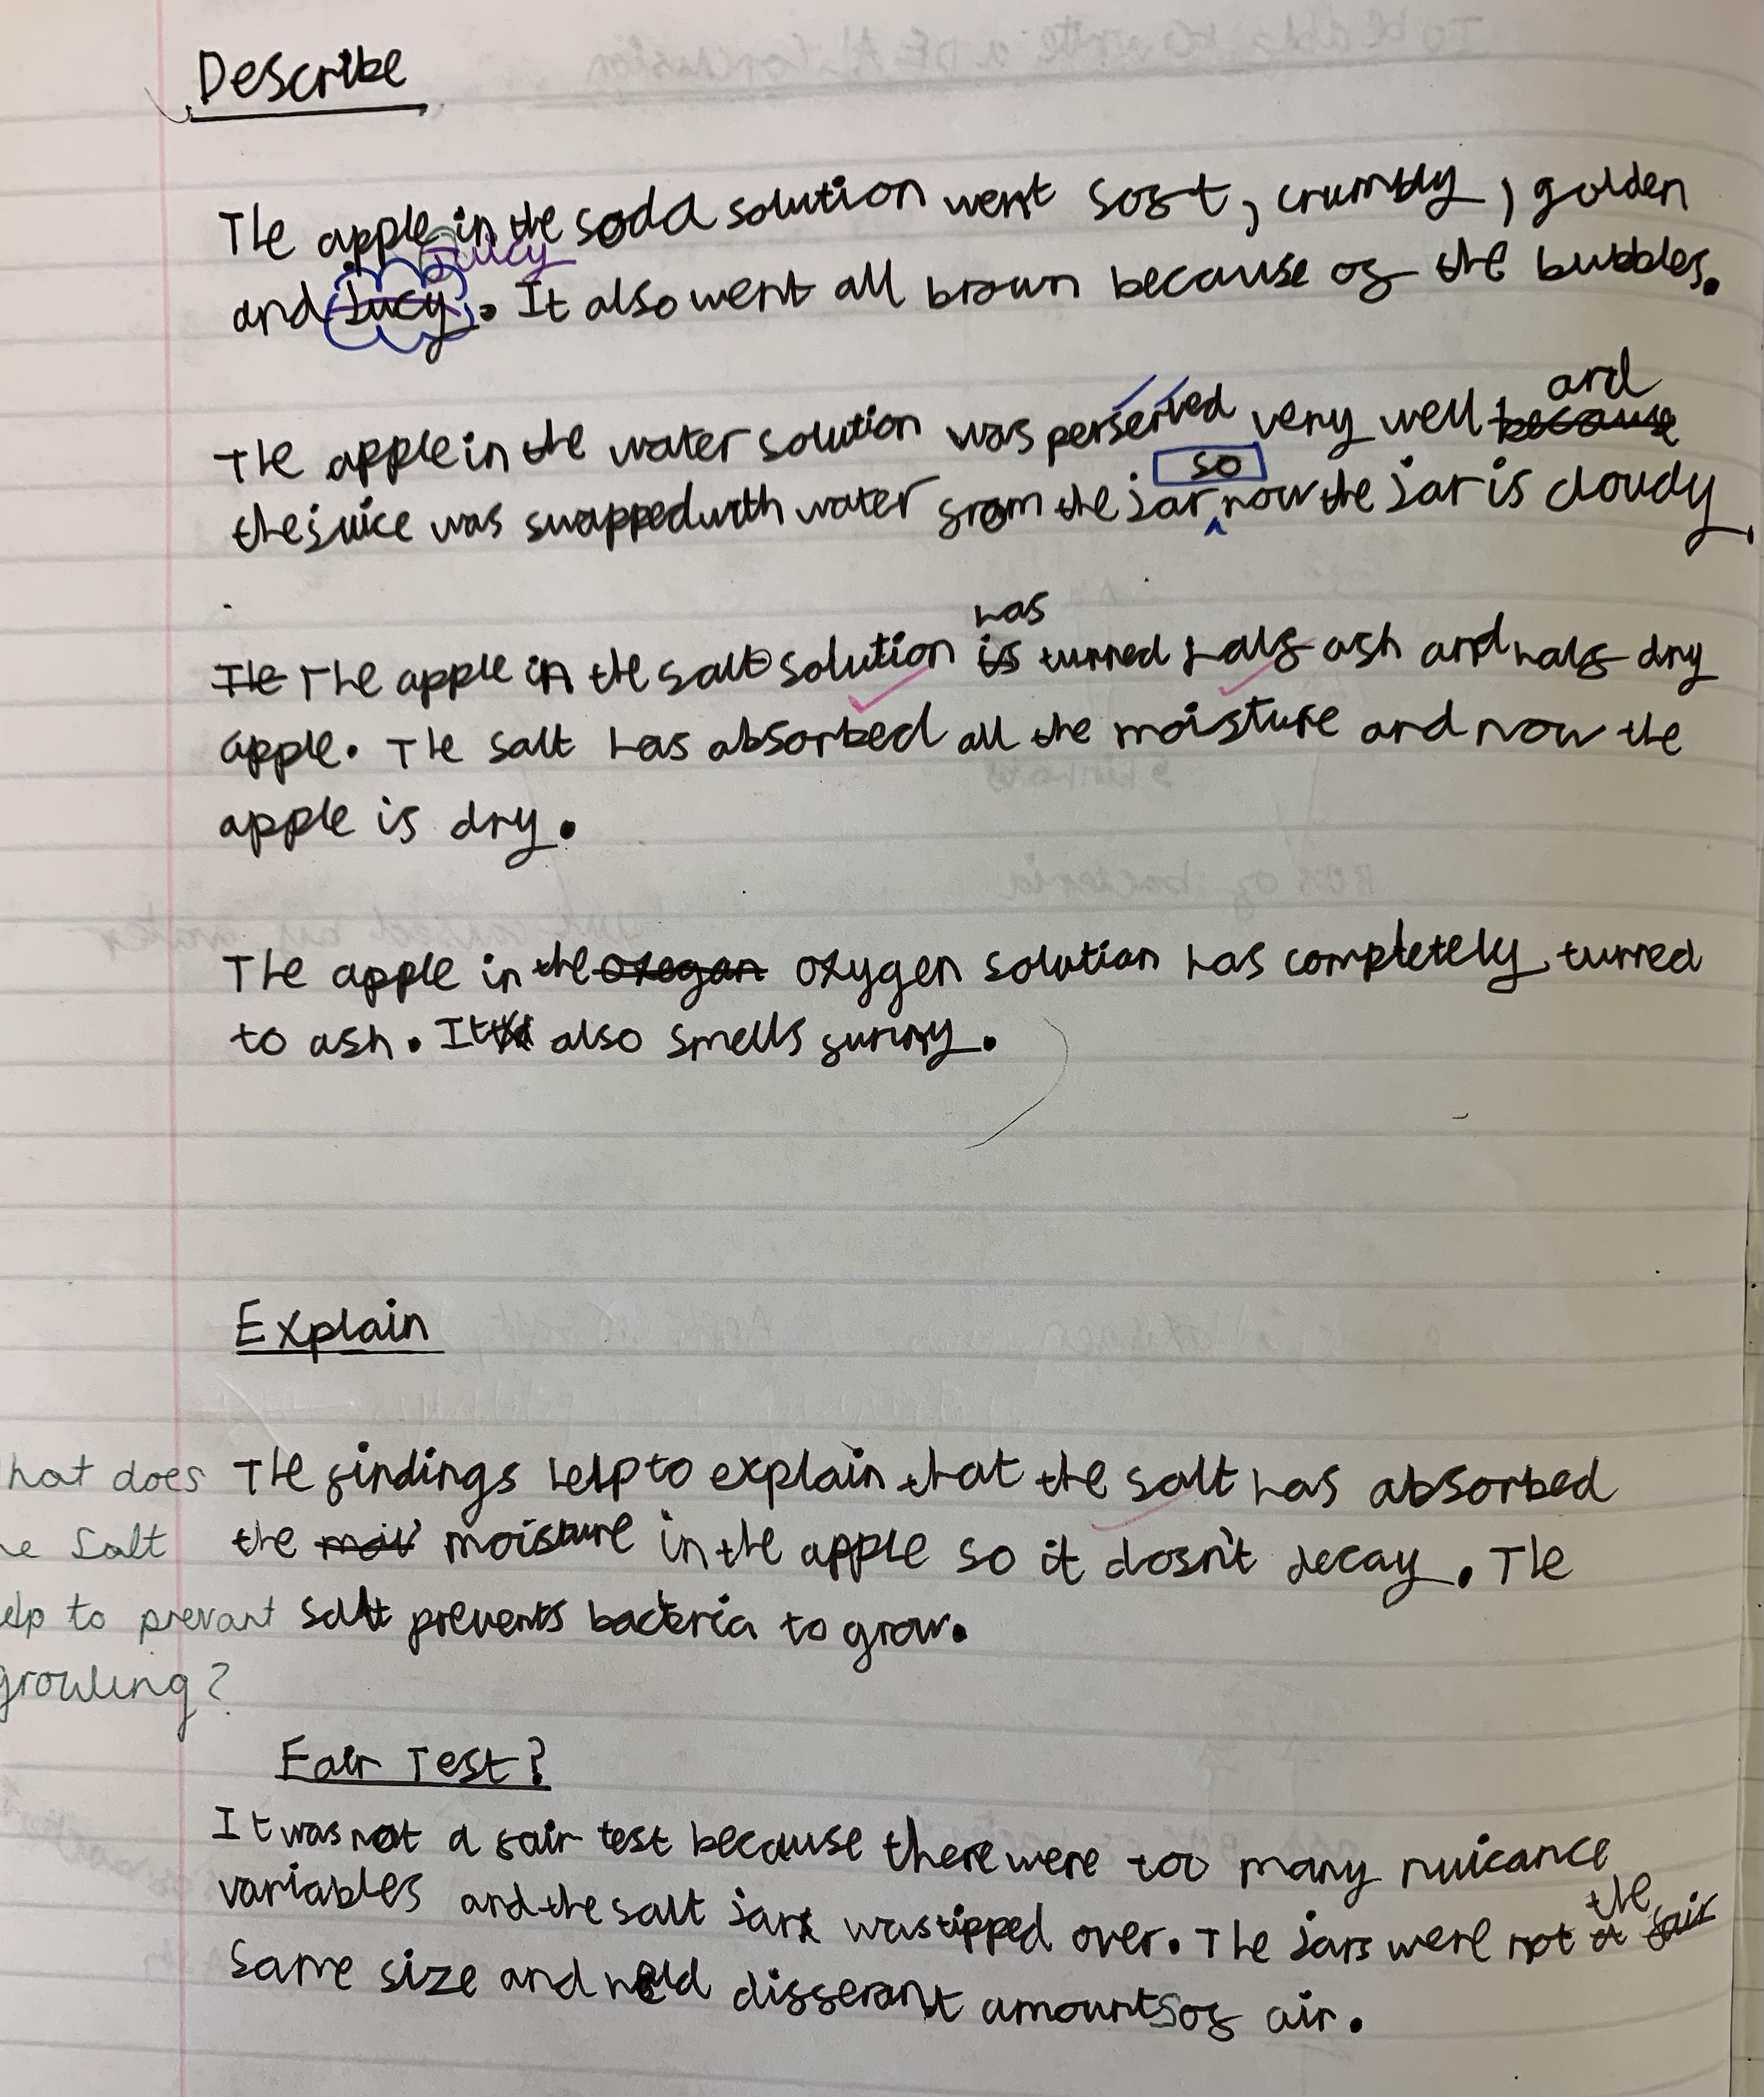 Describe
The apple in the soda solution went soft, crumbly, golden
Juicy
and jucy. It also went all brown because of the bubbles.
and
The apple in the water solution was perserved very well because
so
the juice was swapped with water from the jar now the jar is cloudy.
has
The The apple in the salt solution is turned half ash and half dry
apple. The salt has absorbed all the moisture and now the
apple is dry.
The apple in the oxegan oxygen solution has completely turned
to ash. It also smells funny.
Explain
hat does The findings help to explain that the salt has absorbed
e Salt the moi moisture in the apple so it dosn't decay. The
elp to prevant salt prevents bacteria to grow.
growling?
Fair Test?
It was not a fair test because there were too many nuicance
variables and the salt jar was tipped over. The jars were not a fair
the
same size and held differant amounts of air.